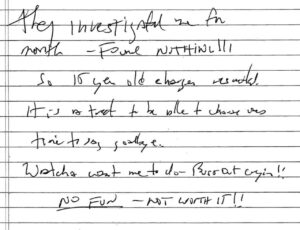 They investigated me for
month - Found NOTHING!!!
So 15 year old charges resulted.
It is a treat to be able to choose
time to say goodbye.
Watcha want me to do - Burst out cryin!!
NO FUN - NOT WORTH IT!!